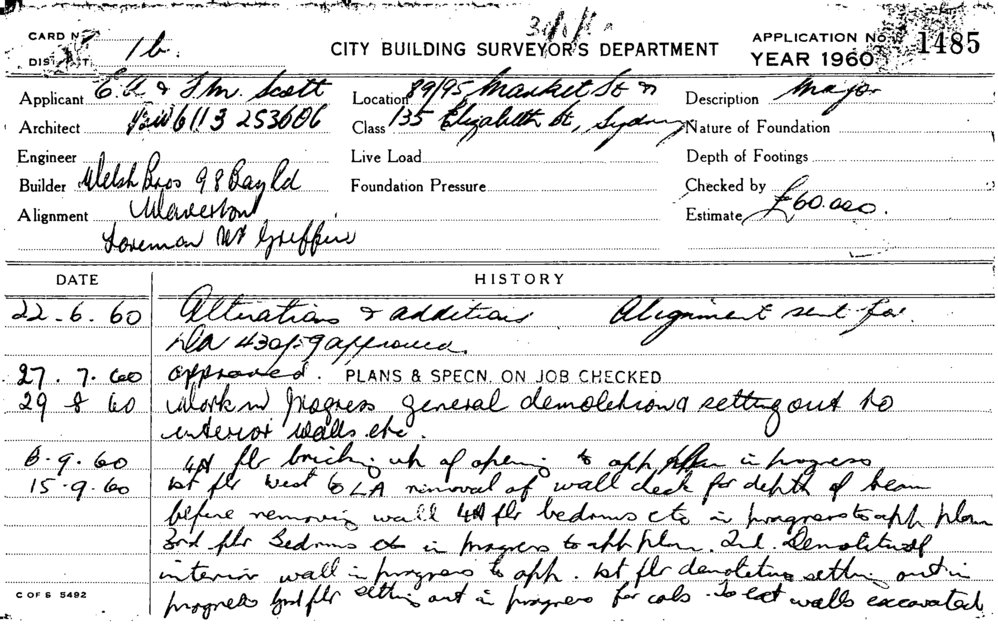 CARD No
DISTRICT 1b.
CITY BUILDING SURVEYOR'S DEPARTMENT
APPLICATION No. 1485
YEAR 1960
Applicant E. A. & F. M. Scott
Location 89/95 Market St &
Description Major
Architect BW6113 253606
Class 135 Elizabeth St, Sydney
Nature of Foundation
Engineer
Live Load
Depth of Footings
Builder Welsh Bros 98 Bay Rd
Foundation Pressure
Checked by
Alignment Waverton
Estimate £60.000.
Foreman Mr Griffin
DATE HISTORY
22.6.60 Alterations & additions Alignment sent for.
DA approved.
27.7.60 approved. PLANS & SPECN. ON JOB CHECKED
29 8 60 Work in progress general demolition & setting out to
interior walls etc.
6.9.60 4th flr bricking up of opening to app plan in progress
15.9.60 1st flr west to LA removal of wall check for depth of beam
before removing wall 4th flr bedrms etc in progress to app plan
3rd flr Bedrms etc in progress to app plan. 2nd. Demolition of
interior wall in progress to app. 1st flr demolition setting out in
progress Grd flr setting out in progress for cols. To ext walls excavated
C OF S 5492